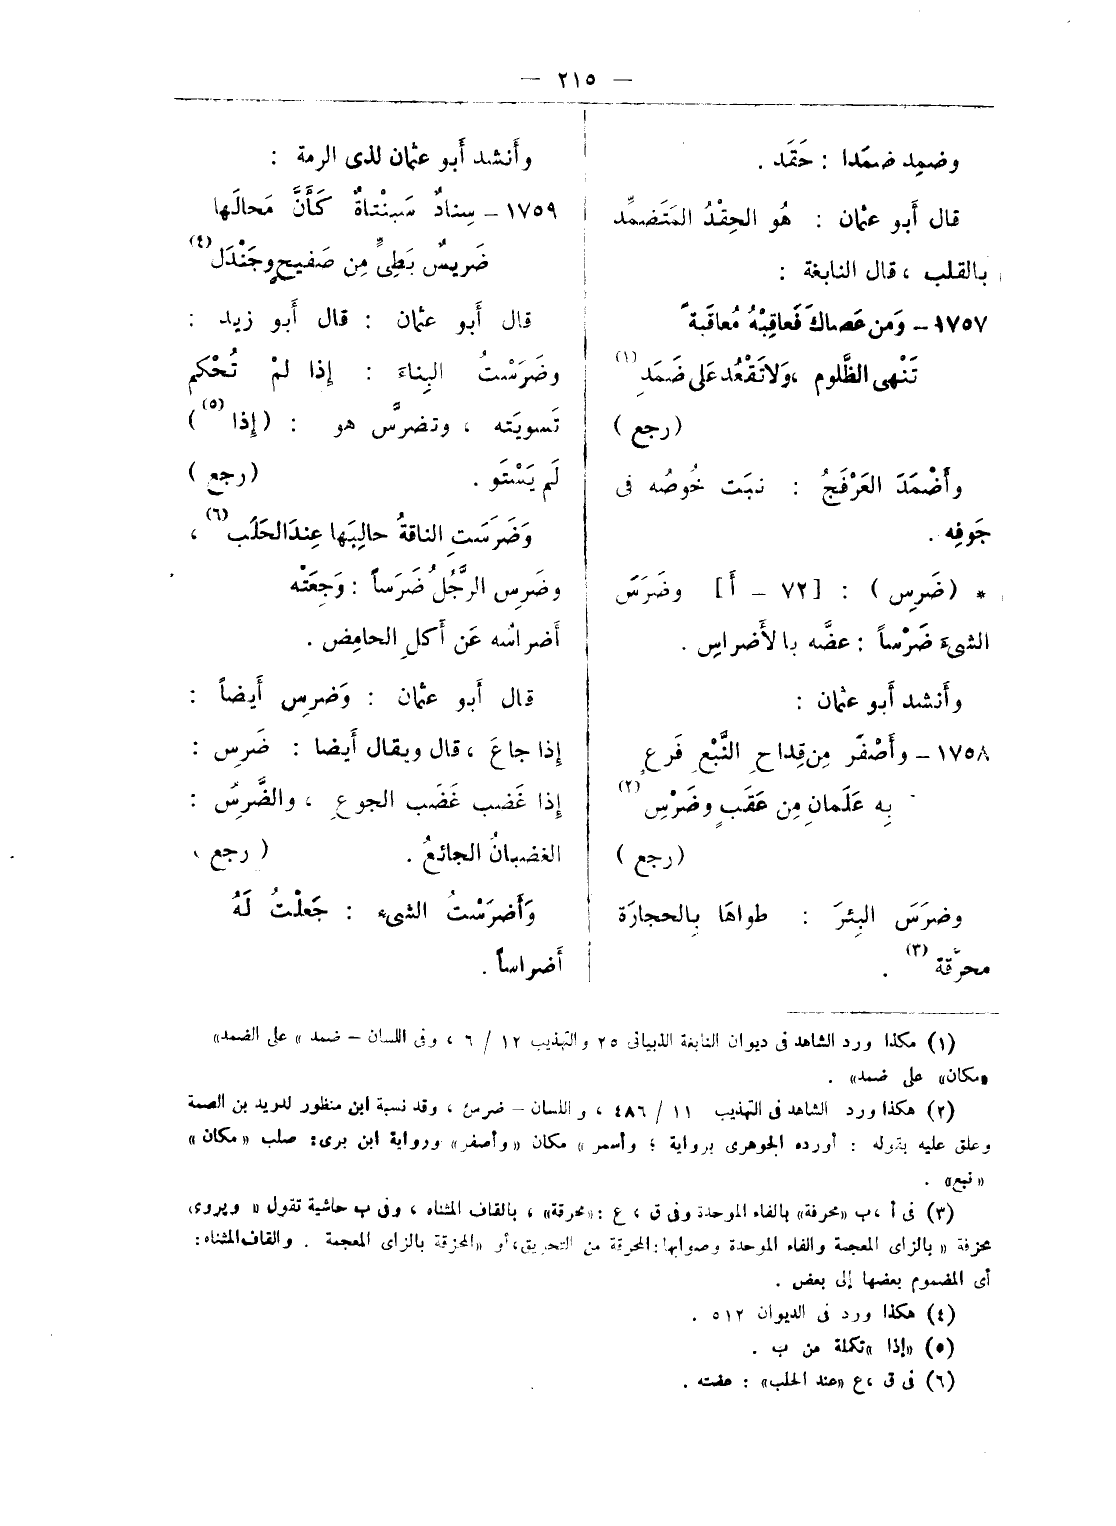 — ٢١٥ —
وضمِد ضمَدا : حَقَد .
قال أبو عثمان : هُو الحِقْدُ المَتَضمِّد
بالقلب ، قال النابغة :
١٧٥٧ – وَمَن عَصاكَ فَعاقِبْهُ مُعاقَبةً
تَنْهى الظَّلوم ،وَلاتَقْعُد عَلى ضَمَدِ (١)
( رجع )
وأَضْمَدَ العَرْفَجُ : نبَت خُوصُه فى
جَوفِه .
* ( ضَرِس ) : [ ٧٢ – أ ] وضَرَسَ
الشىءَ ضَرْساً : عضَّه بالأَضراسِ .
وأَنشد أَبو عثمان :
١٧٥٨ – وأَصْفَر مِن قِداحِ النَّبْعِ فَرعٍ
بِه عَلَمانِ مِن عَقَبٍ وضَرْسِ (٢)
( رجع )
وضرَسَ البِئرَ : طواهَا بِالحجارَة
محرَّقة (٣) .
وأَنشد أَبو عثمان لذى الرمة :
١٧٥٩ – سِنادٌ سَبنْتاةٌ كَأَنَّ مَحالَها
ضَريسٌ بَطِىٍّ مِن صَفيحٍ وجَنْدَل (٤)
قال أَبو عثمان : قال أَبو زيد :
وضَرَسْتُ البِناءَ : إِذا لمْ تُحْكم
تَسويَته ، وتضرَّس هو : ( إِذا (٥) )
لَم يَسْتَو . ( رجع )
وَضَرَسَتِ الناقةُ حالِبَها عِندَالحَلَب (٦) ،
وضَرِس الرَّجُلُ ضَرَساً : وَجِعَتْه
أَضراسُه عَن أَكلِ الحامِض .
قال أَبو عثمان : وَضرِس أَيضاً :
إِذا جاعَ ، قال ويقال أَيضا : ضَرِس :
إِذا غَضب غَضَب الجوعِ ، والضَّرِسُ :
الغضبانُ الجائعُ . ( رجع )
وَأَضرَسْتُ الشىء : جَعلْتُ لَهُ
أَضراساً .
(١) هكذا ورد الشاهد فى ديوان النابغة الذبيانى ٢٥ والتهذيب ١٢ / ٦ ، وفى اللسان – ضمد « على الضمد»
«مكان» على ضمد» .
(٢) هكذا ورد الشاهد فى التهذيب ١١ / ٤٨٦ ، و اللسان – ضرس ، وقد نسبة ابن منظور لدريد بن الصمة
وعلق عليه بقوله : أورده الجوهرى برواية ؛ وأسمر » مكان «وأصفر» ورواية ابن برى: صلب «مكان»
«نبع» .
(٣) فى أ ،ب «محرفة» بالفاء الموحدة وفى ق ، ع :«محرقة» ، بالقاف المثناه ، وفى ب حاشية تقول « ويروى
محزفة » بالزاى المعجمة والفاء الموحدة وصوابها: المحرقة من التحريق، أو «المحزقة بالزاى المعجمة . والقاف المثناه:
أى المضموم بعضها إلى بعض .
(٤) هكذا ورد فى الديوان ٥١٢ .
(٥) «إذا »تكملة من ب .
(٦) فى ق ،ع «عند الحلب» : عضته .